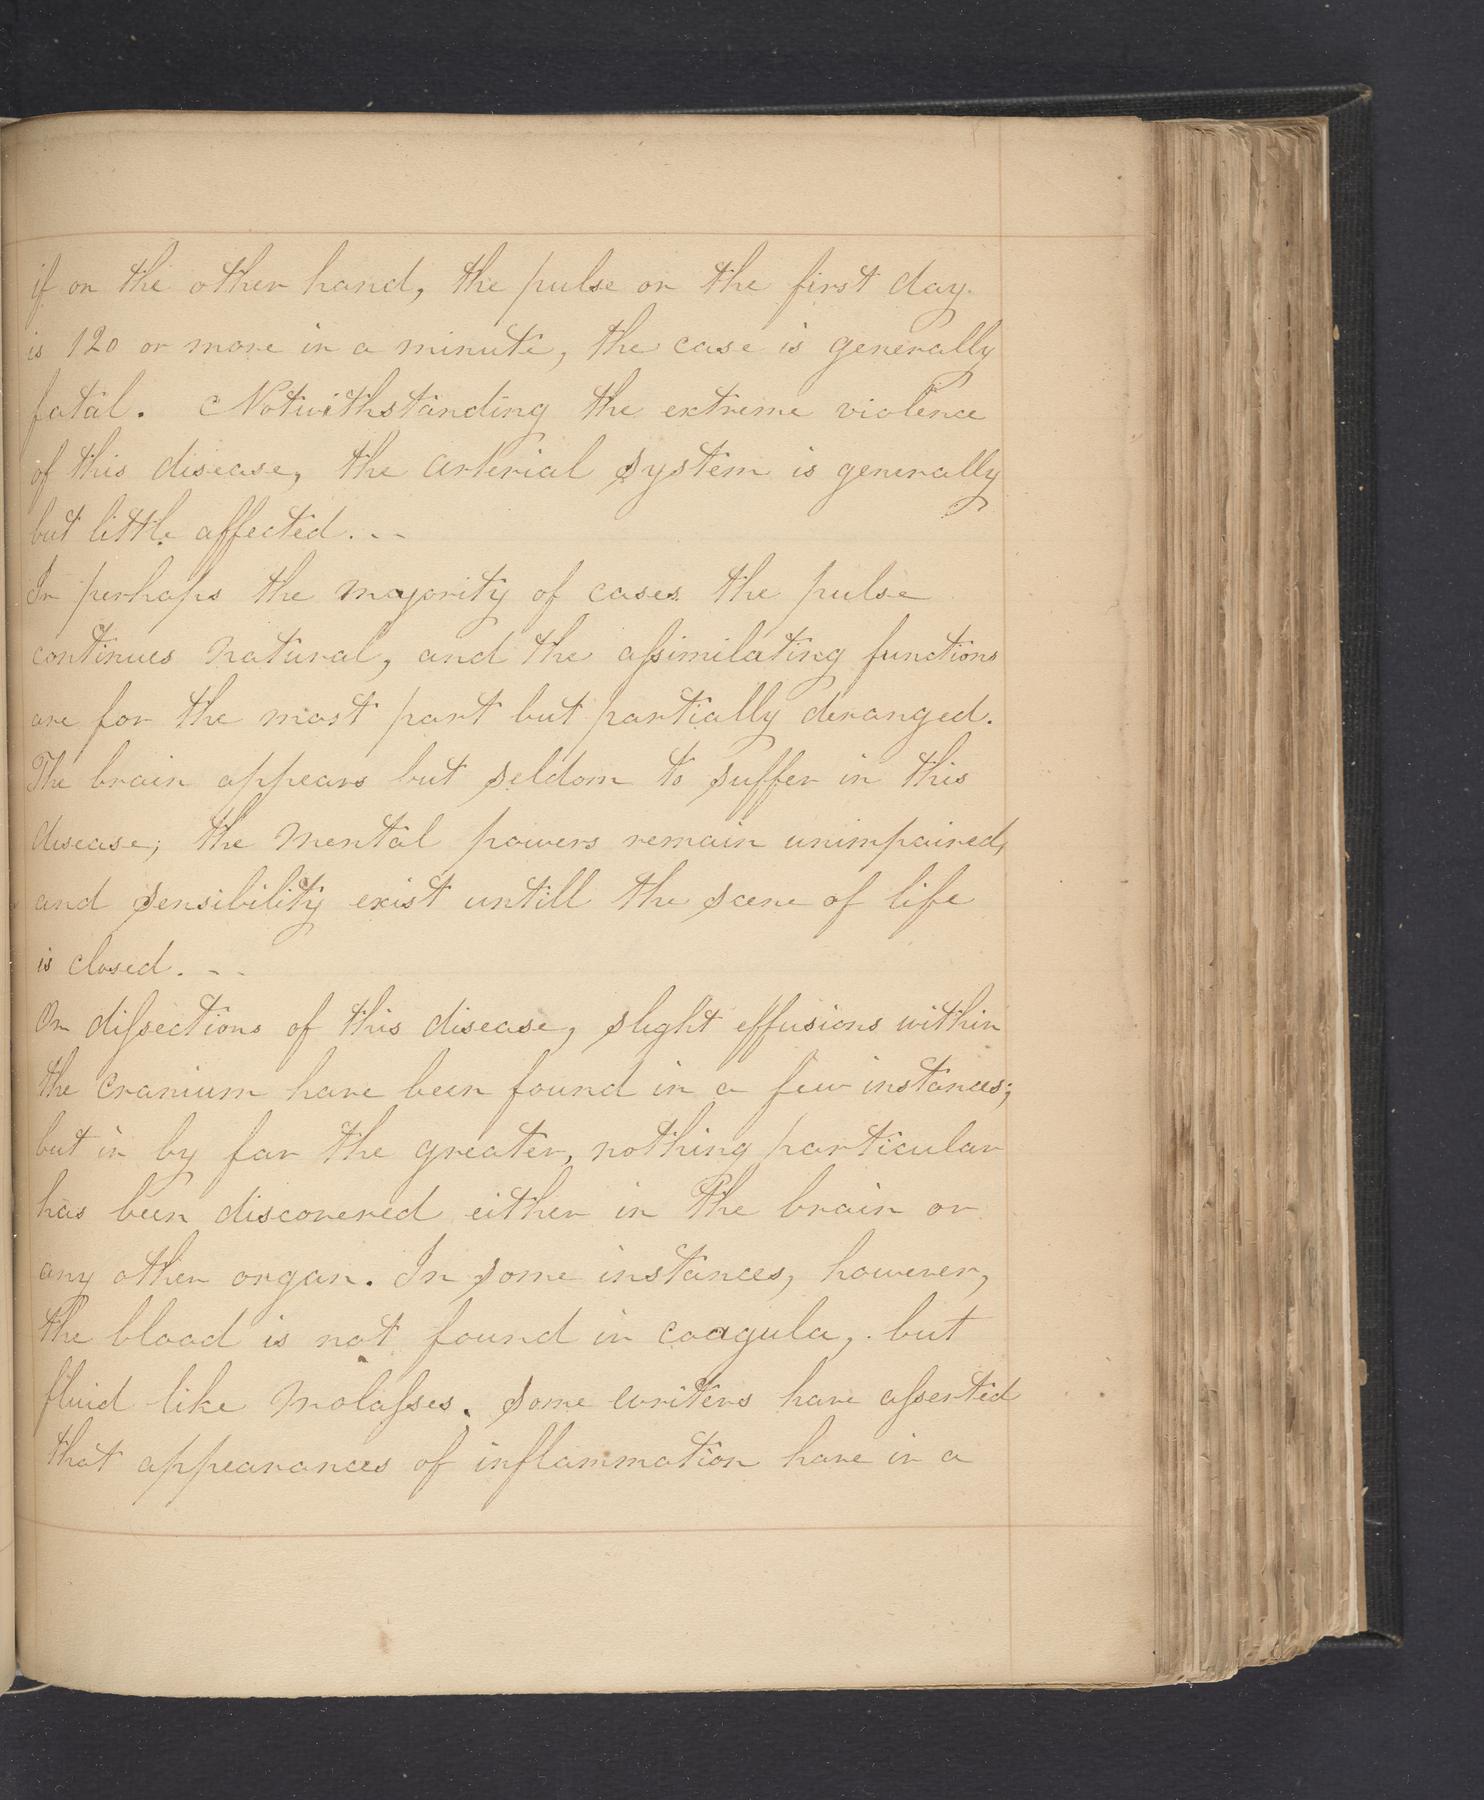 if on the other hand, the pulse on the first day
is 120 or more in a minute, the case is generally
fatal. Notwithstanding the extreme violence
of this disease, the arterial system is generally
but little affected. - -
In perhaps the majority of cases the pulse
continues natural, and the aſsimilating functions
are for the most part but partially deranged.
The brain appears but seldom to suffer in this
disease; the mental powers remain unimpaired,
and sensibility exist untill the scene of life
is closed. - -
On diſsections of this disease, slight effusions within
the cranium have been found in a few instances;
but in by far the greater, nothing particular
has been discovered either in the brain or
any other organ. In some instances, however,
the blood is not found in coagula, but
fluid like molaſses. Some writers have aſserted
that appearances of inflammation have in a